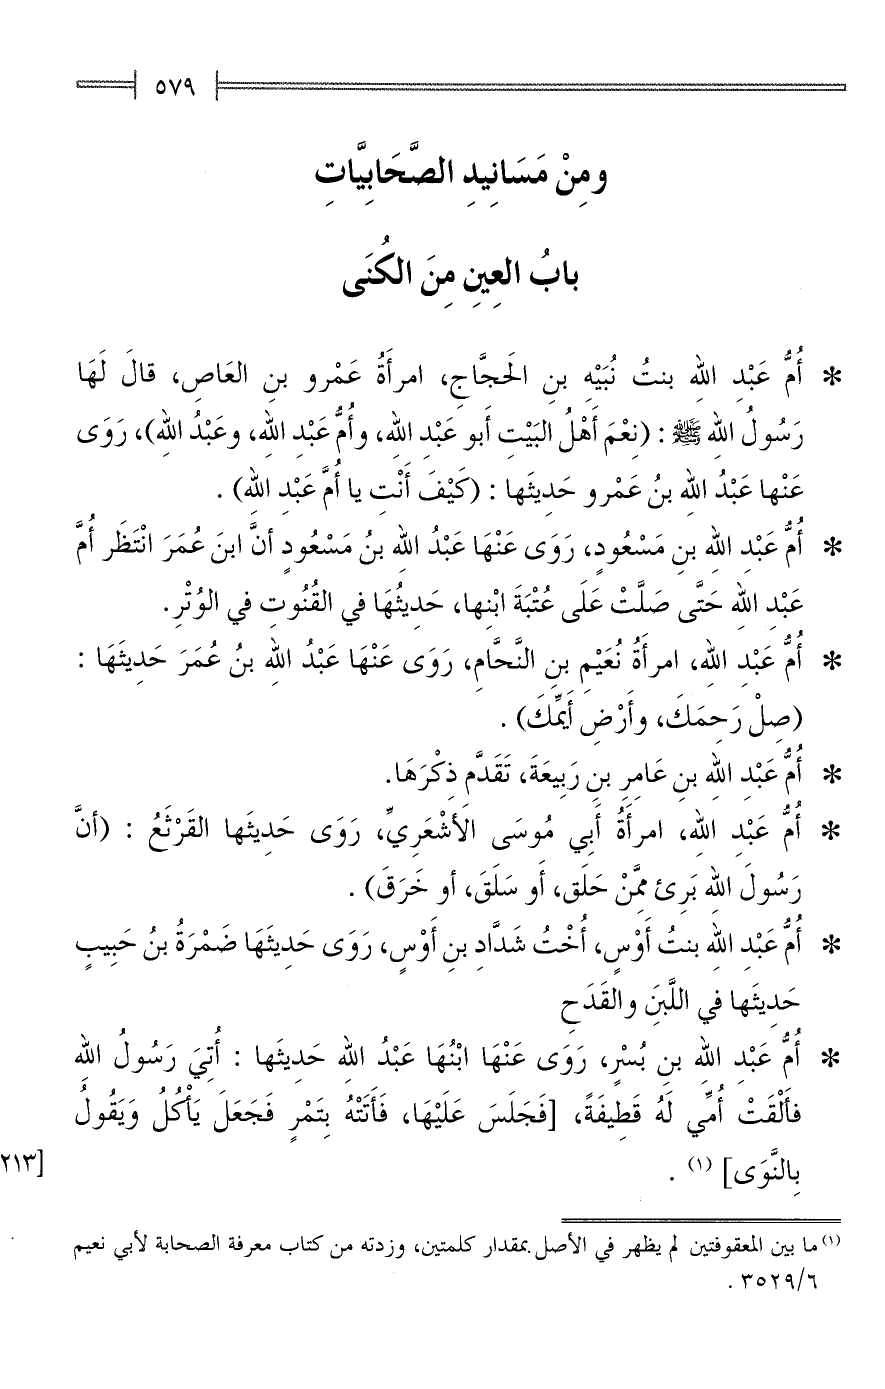 ٥٧٩
ومِنْ مَسَانِيدِ الصَّحَابِيَّاتِ
بابُ العِينِ مِنَ الكُنَى
* أُمُّ عَبْدِ اللهِ بنتُ نُبَيْهِ بنِ الحَجَّاجِ، امرأَةُ عَمْرو بنِ العَاصِ، قالَ لَهَا
رَسُولُ اللهِ ﷺ : (نِعْمَ أَهْلُ البَيْتِ أَبو عَبْدِ اللهِ، وأُمُّ عَبْدِ اللهِ، وعَبْدُ اللهِ)، رَوَى
عَنْها عَبْدُ اللهِ بنُ عَمْرو حَدِيثَها : (كَيْفَ أَنْتِ يا أُمَّ عَبْدِ اللهِ) .
* أُمُّ عَبْدِ اللهِ بنِ مَسْعُودٍ، رَوَى عَنْهَا عَبْدُ اللهِ بنُ مَسْعُودٍ أنَّ ابنَ عُمَرَ انْتَظَر أُمَّ
عَبْدِ اللهِ حَتَّى صَلَّتْ عَلَى عُتْبَةَ ابْنِها، حَدِيثُهَا في القُنُوتِ في الوُتْرِ.
* أُمُّ عَبْدِ اللهِ، امرأَةُ نُعَيْمِ بنِ النَّحَّامِ، رَوَى عَنْهَا عَبْدُ اللهِ بنُ عُمَرَ حَدِيثَهَا :
(صِلْ رَحِمَكَ، وأَرْضِ أَيِّمَكَ) .
* أُمُّ عَبْدِ اللهِ بنِ عَامِرِ بنِ رَبِيعَةَ، تَقَدَّم ذِكْرَهَا.
* أُمُّ عَبْدِ اللهِ، امرأَةُ أَبِي مُوسَى الأَشْعَرِيِّ، رَوَى حَدِيثَها القَرْثَعُ : (أنَّ
رَسُولَ اللهِ بَرِئ مِمَّنْ حَلَق، أَو سَلَقَ، أو خَرَقَ) .
* أُمُّ عَبْدِ اللهِ بنتُ أَوْسٍ، أُخْتُ شَدَّادِ بنِ أَوْسٍ، رَوَى حَدِيثَهَا ضَمْرَةُ بنُ حَبِيبٍ
حَدِيثَها في اللَّبَنِ والقَدَحِ
* أُمُّ عَبْدِ اللهِ بنِ بُسْرٍ، رَوَى عَنْهَا ابْنُهَا عَبْدُ اللهِ حَدِيثَها : أُتِيَ رَسُولُ اللهِ
فأَلْقَتْ أُمِّي لَهُ قَطِيفَةً، [فَجَلَسَ عَلَيْهَا، فَأَتَتْهُ بِتَمْرٍ فَجَعَلَ يَأْكُلُ وَيَقُولُ
بِالنَّوَى] (١) .
[٢١٣
(١) ما بين المعقوفتين لم يظهر في الأصل بمقدار كلمتين، وزدته من كتاب معرفة الصحابة لأبي نعيم
٣٥٢٩/٦ .